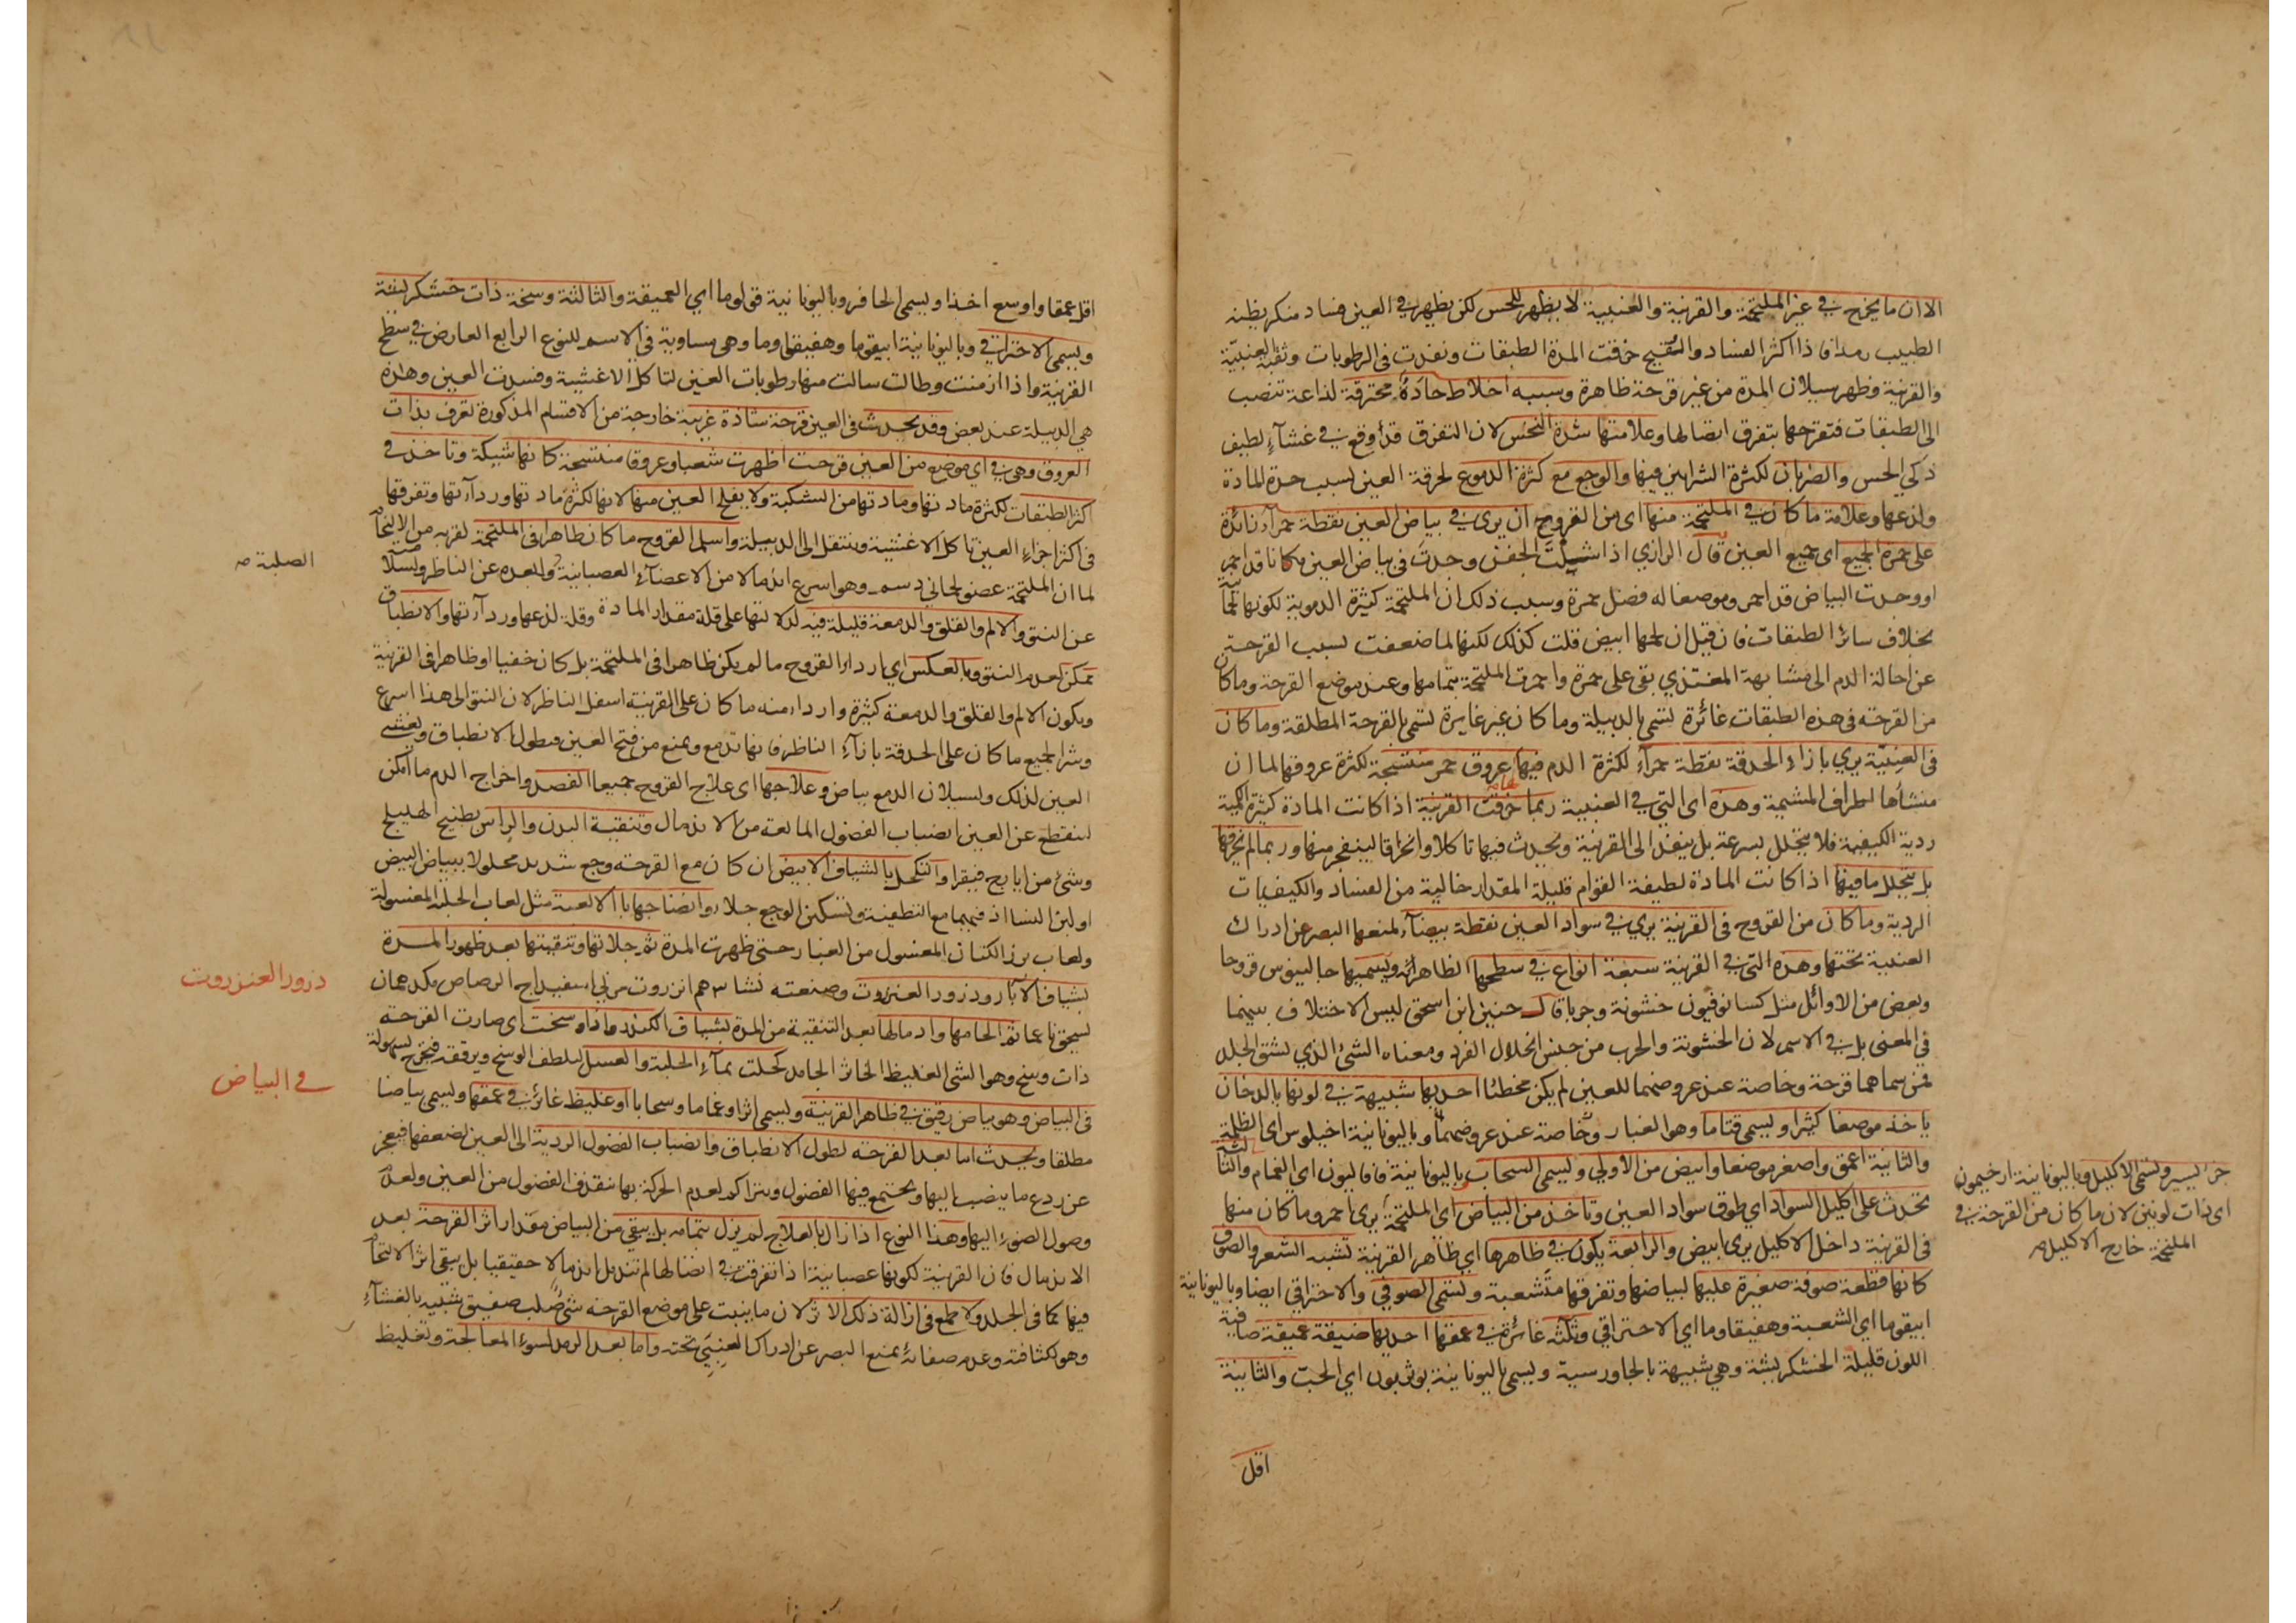 الا ان ما يخرج في غير الملتحمة والقرنية والعنبية لا يظهر للحس لكن يظهر في العين فساد منكر يظنه
الطبيب رمدا فاذا اكثر الفساد والتقيح خرقت المدة الطبقات ونفذت في الرطوبات وثقب العنبية
والقرنية وظهر سيلان المدة من غير قرحة ظاهرة وسببه اخلاط حادة محترقة لذاعة تنصب
الى الطبقات فتقرحها بتفرق اتصالها وعلامتها شدة النخس لان التفرق قد اوقع في غشاء لطيف
ذكي الحس والضربان لكثرة الشرايين فيها والوجع مع كثرة الدموع لحرقة العين بسبب حدة المادة
ولذعها وعلامة ما كان في الملتحمة منها اى من القروح ان يرى في بياض العين نقطة حمراء زائدة
على حمرة الجميع اى جميع العين قال الرازي اذا شيلت الجفن وجدت في بياض العين مكانا قد احمر
او وجدت البياض قد احمر وموضعا له فضل حمرة وسبب ذلك ان الملتحمة كثيرة الدموية لكونها لحمية
بخلاف سائر الطبقات فان قيل ان لحمها ابيض قلت كذلك لكنها لما ضعفت بسبب القرحة
عن احالة الدم الى مشابهة المغتذي بقى على حمرة واحمرت الملتحمة بتمامها وعند موضع القرحة وما كان
من القرحة في هذه الطبقات غائرة تسمى بالدبيلة وما كان غير غايرة تسمى بالقرحة المطلقة وما كان
في العنبية يري بازاء الحدقة نقطة حمراء لكثرة الدم فيها عروق حمر منتسجة لكثرة عروقها لما ان
منشأها اطراف المشيمة وهذه اى التي في العنبية ربما خرقت القرنية اذا كانت المادة كثيرة الكمية
ردية الكيفية فلا يتحلل بسرعة بل ينفذ الى القرنية ويحدث فيها تاكلا وانخراقا لينفجر منها وربما لم تخرقها
بل يتحلل ما فيها اذا كانت المادة لطيفة القوام قليلة المقدار خالية من الفساد والكيفيات
الردية وما كان من القروح في القرنية يري في سواد العين نقطة بيضاء لمنعها البصر عن ادراك
العنبية تحتها وهذه التي في القرنية سبعة انواع في سطحها الظاهر اربعة ويسميها جالينوس قروحا
وبعض من الاوائل مثل كسانوفيون خشونة وجربا قال حنين ابن اسحق ليس الاختلاف بينهما
في المعنى بل في الاسم لان الخشونة والجرب من جنس انحلال الفرد ومعناه الشئ الذي يشق الجلد
فمن سماهما قرحة وخاصة عند عروضهما للعين لم يكن مخطئا احديها شبيهة في لونها بالدخان
ياخذ موضعا كثيرا ويسمى قتاما وهو الغبار وخاصة عند عروضهما وباليونانية اخيلوس اى الظلمة
والثانية اعمق واصغر موضعا وابيض من الاولى ويسمى السحاب باليونانية فافاليون اي الغمام والثالثة
تحدث على اكليل السواد اي طوق سواد العين وتاخذ من البياض اى الملتحمة يرى احمر وما كان منها
في القرنية داخل الاكليل يرى ابيض والرابعة يكون في ظاهرها اي ظاهر القرنية تشبه الشعر والصوف
كانها قطعة صوفة صغيرة عليها لبياضها وتفرقها متشعبة وتسمى الصوفي والاحتراقي ايضا وباليونانية
ابيقوما اى الشعبة وهفيقاوما اى الاحتراقي وثلثة غائرة في عمقها احديها ضيقة عميقة صافية
اللون قليلة الخشكريشة وهي شبيهة بالجاورسية ويسمى باليونانية بوثريون اي الحب والثانية
اقل
جزء يسير وتسمى الاكليل وباليونانية ارخيمون
اى ذات لونين لان ما كان من القرحة في
الملتحمة خارج الاكليل
اقل عمقا واوسع اخذا ويسمى الحافر وباليونانية قولوما اي العميقة والثالثة وسخة ذات خشكريشة
ويسمى الاحتراقي وباليونانية ابيقوما وهفيقاوما وهى مساوية في الاسم للنوع الرابع العارض في سطح
القرنية واذا ازمنت وطالت سالت منها رطوبات العين لتاكل الاغشية وفسدت العين وهذه
هي الدبيلة عند بعض وقد يحدث في العين قرحة شاذة غريبة خارجة من الاقسام المذكورة تعرف بذات
العروق وهى في اي موضع من العين قرحت اظهرت شعبا وعروقا منتسجة كانها شبيكة وتاخذ في
اكثر الطبقات لكثرة مادتها ومادتها من الشبكية ولا يفلح العين منها لانها لكثرة مادتها ورداءتها وتفرقها
في اكثر اجزاء العين تاكل الاغشية وينتقل الى الدبيلة واسلم القروح ما كان ظاهرا في الملتحمة لقربه من الالتحام
لما ان الملتحمة عضو لحماني دسم وهو اسرع اندمالا من الاعضاء العصبانية والبعده عن الناظر وسلامته
عن النتو والالم والقلق والدمعة قليلة فيه لدلالتها على قلة مقدار المادة وقلة لذعها ورداءتها والانطباق
ممكن لعدم النتو وبالعكس اى اردا القروح ما لم يكن ظاهرا في الملتحمة بل كان خفيا او ظاهرا في القرنية
ويكون الالم والقلق والدمعة كثيرة واردا منه ما كان على القرنية اسفل الناظر لان النتو الى هذا اسرع
وشر الجميع ما كان على الحدقة بازاء الناظر فانها تدمع ويمنع من فتح العين فيطول الانطباق ويغشى
العين لذلك ولسيلان الدمع بياض وعلاجها اى علاج القروح جميعا الفصد واخراج الدم ما امكن
لينقطع عن العين انصباب الفضول المانعة من الاندمال وتنقية البدن والراس بطبيخ الهليلج
وشئ من ايارج فيقرا والتكحل بالشياف الابيض ان كان مع القرحة وجع شديد محلولا ببياض البيض
او لبن النسا اذ فيهما مع التطفية وتسكين الوجع جلاء وانضاجها بالالعبة مثل لعاب الحلبة المغسولة
ولعاب بزر الكتان المغسول من الغبار حتى ظهرت المدة ثم جلائها وتنقيتها بعد ظهور المدة
بشياف الآبار وذرور العنزروت وصنعته نشا ٣ هم انزروت مربى اسفيداج الرصاص مكد همان
يسحق ناعما ثم الحامها وادمالها بعد التنقية من المدة بشياف الكندر وما ذا وسخت اى صارت القرحة
ذات وسخ وهو الشئ الغليظ الخاثر الجامد كحلت بماء الحلبة والعسل ليلطف الوسخ ويرققه فيخرج بسهولة
في البياض وهو بياض رقيق في ظاهر القرنية ويسمى اثرا وغماما وسحابا او غليظ غائر في عمقها ويسمى بياضا
مطلقا ويحدث اما بعد القرحة لطول الانطباق وانصباب الفضول الردية الى العين لضعفها فيعجز
عن ردع ما ينصب اليها ويجتمع فيها الفضول ويتراكم لعدم الحركة بها تنقذف الفضول من العين ولعدم
وصول الضوء اليها وهذا النوع اذا زال بالعلاج لم يزل بتمامه بل يبقى من البياض مقدار اثر القرحة بعد
الاندمال فان القرنية لكونها عصبانية اذا تفرقت في اتصالها لم تندمل اندمالا حقيقيا بل يبقى اثر الالتحام
فيها كما في الجلد ولا طمع في ازالة ذلك الاثر لان ما ينبت على موضع القرحة شئ صلب صفيق شبيه بالغشاء
وهو لكثافته وعدم صفائه يمنع البصر عن ادراك العنبي تحته واما بعد الرمد لسوء المعالجة وتغليظ
الصلبة
ذرور العنزروت
في البياض